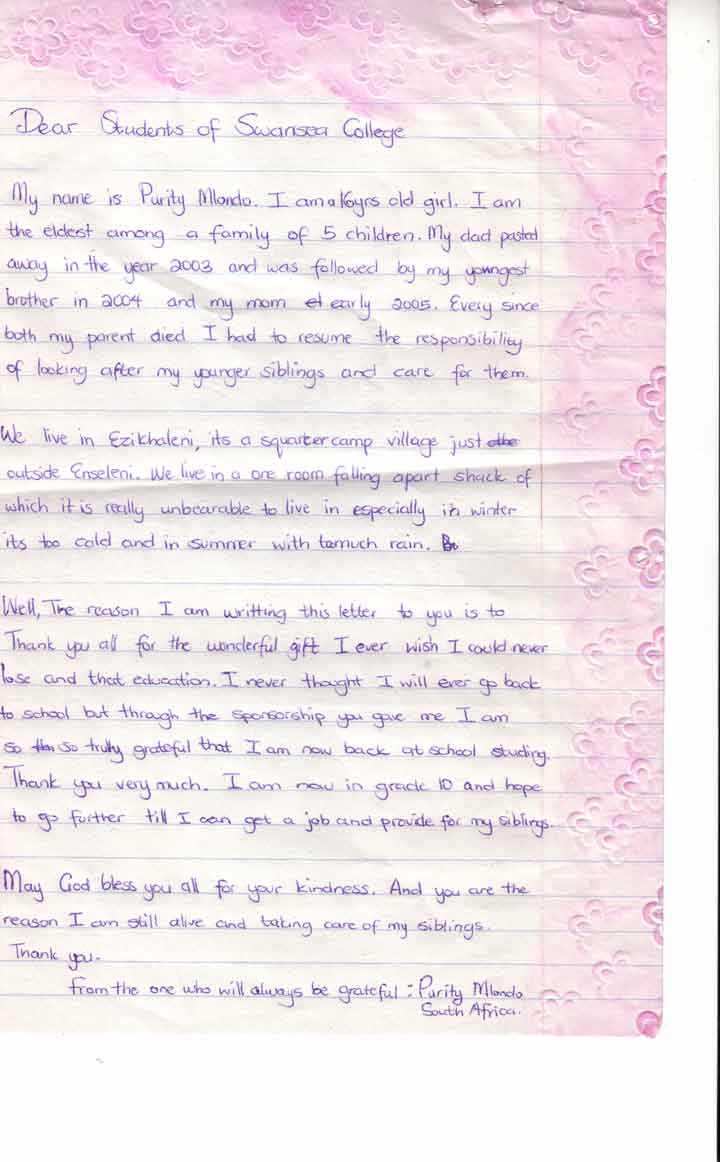 Dear Students of Swansea College
My name is Purity Mlondo. I am a 16yrs old girl. I am
the eldest among a family of 5 children. My dad pasted
away in the year 2003 and was followed by my youngest
brother in 2004 and my mom early 2005. Every since
both my parent died I had to resume the responsibility
of looking after my younger siblings and care for them.
We live in Ezikhaleni, its a squartercamp village just
outside Enseleni. We live in a one room falling apart shack of
which it is really unbearable to live in especially in winter
its too cold and in summer with tomuch rain.
Well, The reason I am writting this letter to you is to
Thank you all for the wonderful gift I ever wish I could never
lose and that education. I never thought I will ever go back
to school but through the sponsorship you gave me I am
so so truly grateful that I am now back at school studing.
Thank you very much. I am now in grade 10 and hope
to go further till I can get a job and provide for my siblings.
May God bless you all for your kindness. And you are the
reason I am still alive and taking care of my siblings.
Thank you.
from the one who will always be grateful : Purity Mlondo
South Africa.